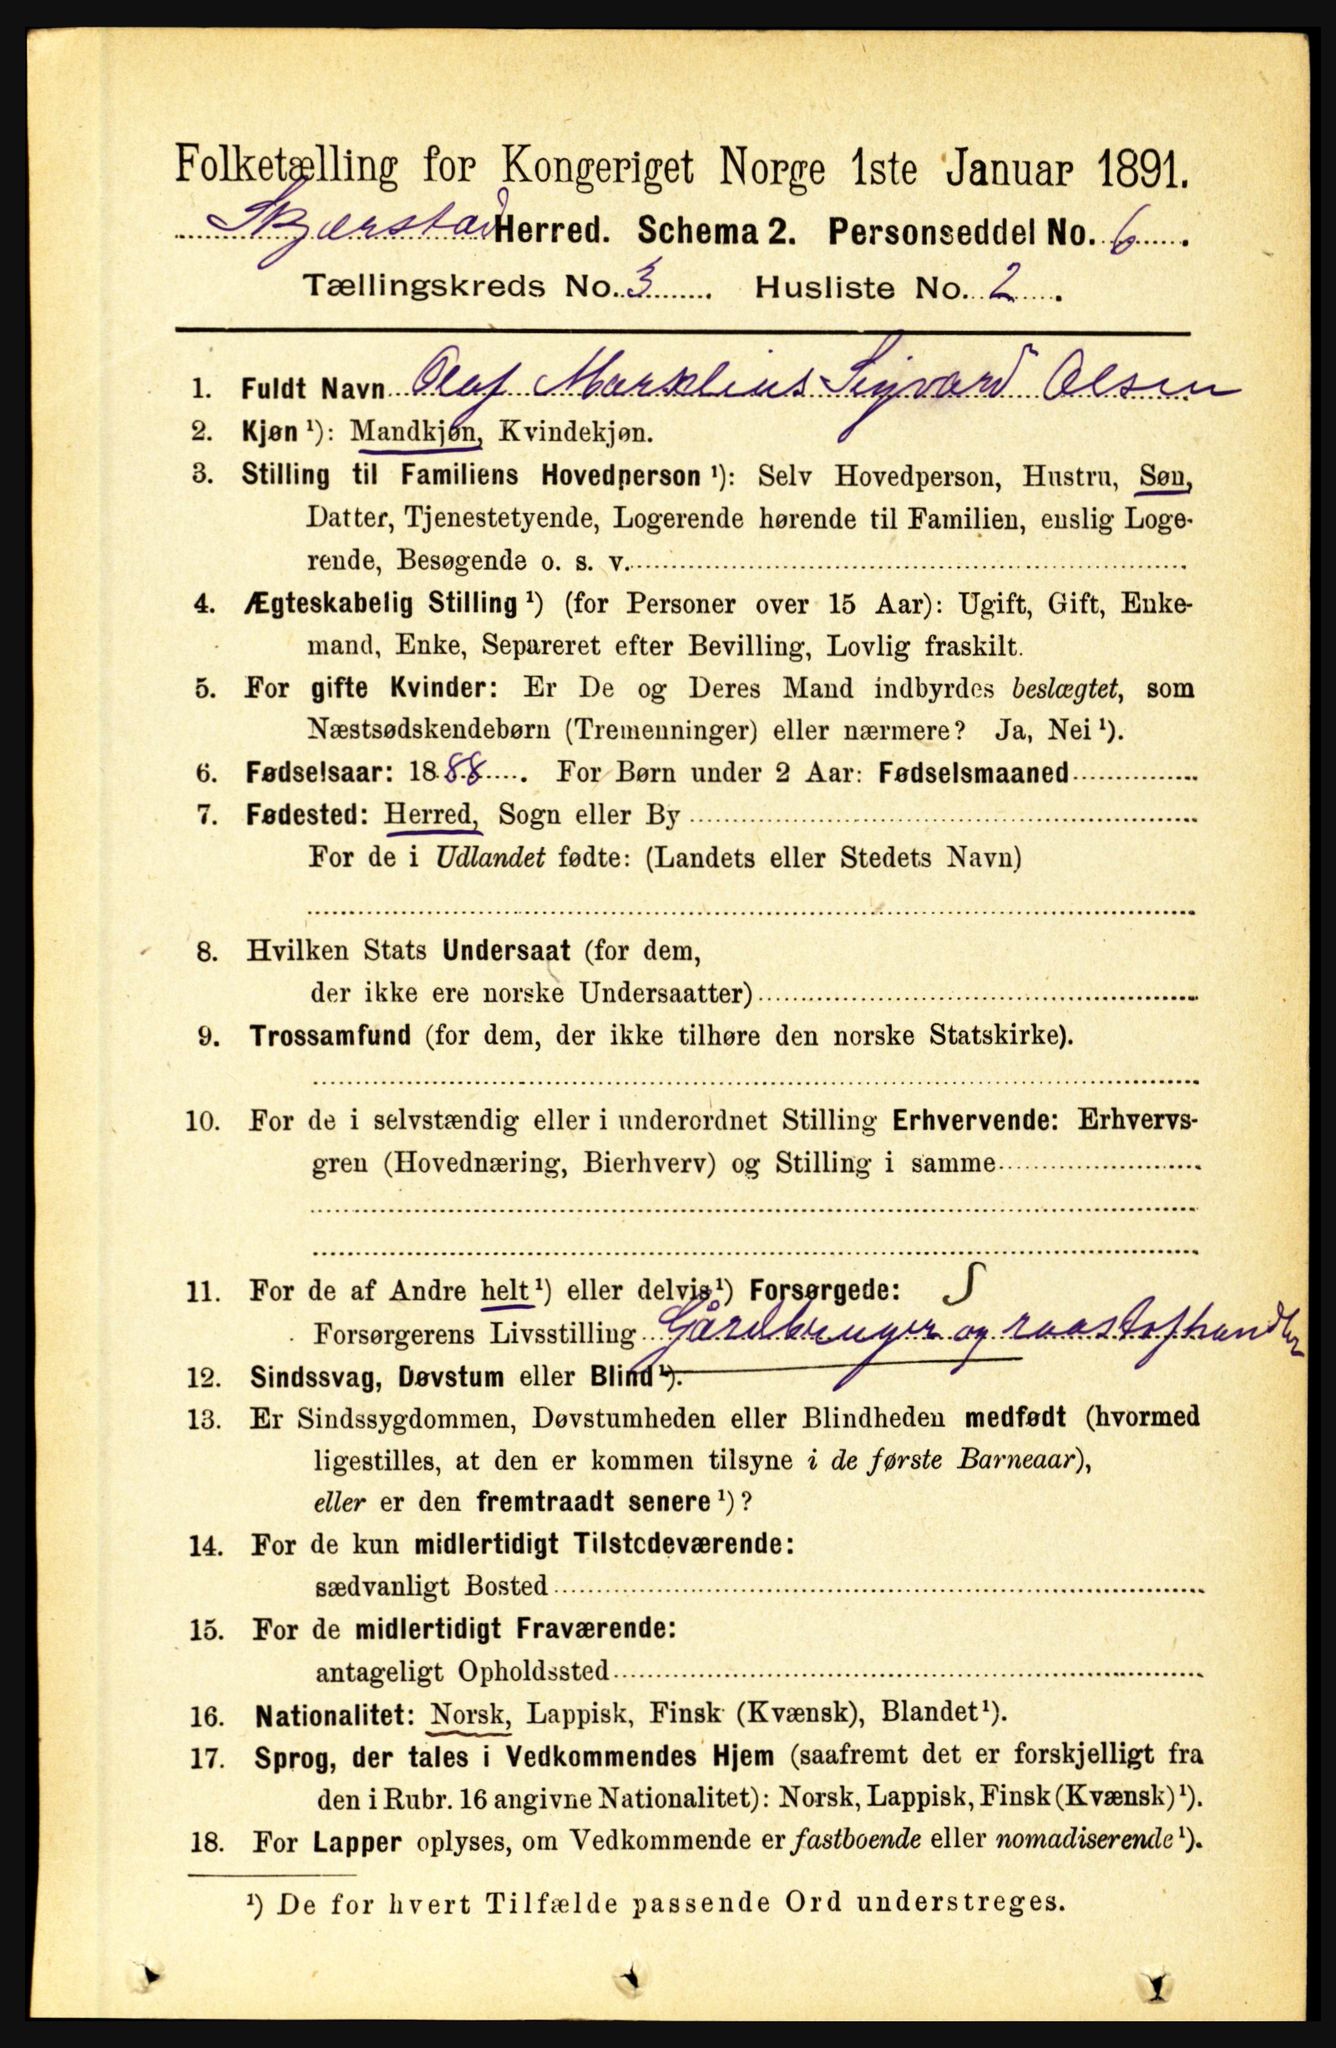 Folketælling for Kongeriget Norge 1ste Januar 1891.
Skjerstad Herred. Schema 2. Personseddel No. 6.
Tællingskreds No. 3. Husliste No. 2.
1. Fuldt Navn Olaf Marselius Sigvard Olsen
2. Kjøn ¹): Mandkjøn, Kvindekjøn.
3. Stilling til Familiens Hovedperson ¹): Selv Hovedperson, Hustru, Søn,
Datter, Tjenestetyende, Logerende hørende til Familien, enslig Loge-
rende, Besøgende o. s. v.
4. Ægteskabelig Stilling ¹) (for Personer over 15 Aar): Ugift, Gift, Enke-
mand, Enke, Separeret efter Bevilling, Lovlig fraskilt.
5. For gifte Kvinder: Er De og Deres Mand indbyrdes beslægtet, som
Næstsødskendebørn (Tremenninger) eller nærmere? Ja, Nei ¹).
6. Fødselsaar: 1888. For Børn under 2 Aar: Fødselsmaaned
7. Fødested: Herred, Sogn eller By
For de i Udlandet fødte: (Landets eller Stedets Navn)
8. Hvilken Stats Undersaat (for dem,
der ikke ere norske Undersaatter)
9. Trossamfund (for dem, der ikke tilhøre den norske Statskirke).
10. For de i selvstændig eller i underordnet Stilling Erhvervende: Erhvervs-
gren (Hovednæring, Bierhverv) og Stilling i samme
11. For de af Andre helt ¹) eller delvis ¹) Forsørgede: S
Forsørgerens Livsstilling Gårdbruger og raastofhandler
12. Sindssvag, Døvstum eller Blind ¹).
13. Er Sindssygdommen, Døvstumheden eller Blindheden medfødt (hvormed
ligestilles, at den er kommen tilsyne i de første Barneaar),
eller er den fremtraadt senere ¹)?
14. For de kun midlertidigt Tilstedeværende:
sædvanligt Bosted
15. For de midlertidigt Fraværende:
antageligt Opholdssted
16. Nationalitet: Norsk, Lappisk, Finsk (Kvænsk), Blandet ¹).
17. Sprog, der tales i Vedkommendes Hjem (saafremt det er forskjelligt fra
den i Rubr. 16 angivne Nationalitet): Norsk, Lappisk, Finsk (Kvænsk) ¹).
18. For Lapper oplyses, om Vedkommende er fastboende eller nomadiserende ¹).
¹) De for hvert Tilfælde passende Ord understreges.